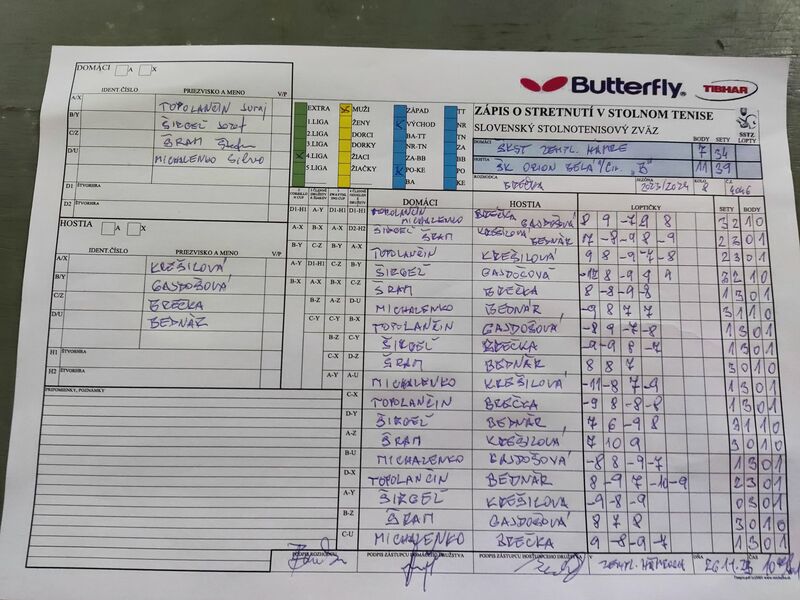 DOMÁCI A X
IDENT.ČÍSLO PRIEZVISKO A MENO V/P
A/X TOPOLANČIN JURAJ
B/Y ŠIRGEĽ JOZEF
C/Z ŠRAM
D/U MICHALENKO SILVO
D1 ŠTVORHRA
D2 ŠTVORHRA
HOSTIA A X
IDENT.ČÍSLO PRIEZVISKO A MENO V/P
A/X KREŠILOVÁ
B/Y GAJDOŠOVÁ
C/Z BREČKA
D/U BEDNÁR
H1 ŠTVORHRA
H2 ŠTVORHRA
PRIPOMIENKY, POZNÁMKY
EXTRA MUŽI ZÁPAD TT
1.LIGA ŽENY VÝCHOD NR
2.LIGA DORCI BA-TT TN
3.LIGA DORKY NR-TN ZA
4.LIGA ŽIACI ZA-BB BB
5.LIGA ŽIAČKY PO-KE PO
BA KE
Butterfly TIBHAR
ZÁPIS O STRETNUTÍ V STOLNOM TENISE
SLOVENSKÝ STOLNOTENISOVÝ ZVÄZ
BODY SETY SSTZ LOPTY
DOMÁCI ŠKST ZEMPL. HAMRE 7 34
HOSTIA ŠK ORION BELÁ N/CIR. "B" 11 39
ROZHODCA BREČKA SEZÓNA 2023/2024 KOLO 8 Č. 4046
DOMÁCI HOSTIA LOPTIČKY SETY BODY
D1-H1 A-Y D1-H1 D1-H1 TOPOLANČIN MICHALENKO BREČKA GAJDOŠOVÁ 8 9 -7 9 8 3 2 1 0
A-X B-X A-X D2-H2 ŠIRGEĽ ŠRAM KREŠILOVÁ BEDNÁR 17 -8 -9 8 -9 2 3 0 1
B-Y C-Z B-Y A-X TOPOLANČIN KREŠILOVÁ 9 8 -9 -7 -8 2 3 0 1
A-Y D1-H1 C-Z B-Y ŠIRGEĽ GAJDOŠOVÁ -12 8 -9 9 4 3 2 1 0
B-X A-X A-Y C-Z ŠRAM BREČKA 8 -8 -9 -8 1 3 0 1
B-Z A-Z D-U MICHALENKO BEDNÁR -9 8 7 7 3 1 1 0
C-Y B-X A-Y TOPOLANČIN GAJDOŠOVÁ -8 9 -7 -8 1 3 0 1
B-Z C-Y B-Z ŠIRGEĽ BREČKA -9 -9 8 -7 1 3 0 1
C-X D-Z ŠRAM BEDNÁR 8 8 7 3 0 1 0
A-Y A-U MICHALENKO KREŠILOVÁ -11 -8 7 -9 1 3 0 1
C-X TOPOLANČIN BREČKA -9 8 -8 -8 1 3 0 1
D-Y ŠIRGEĽ BEDNÁR 7 6 -9 8 3 1 1 0
A-Z ŠRAM KREŠILOVÁ 7 10 9 3 0 1 0
B-U MICHALENKO GAJDOŠOVÁ -8 8 -9 -7 1 3 0 1
D-X TOPOLANČIN BEDNÁR 8 -9 7 -10 -9 2 3 0 1
A-Y ŠIRGEĽ KREŠILOVÁ -9 -8 -9 0 3 0 1
B-Z ŠRAM GAJDOŠOVÁ 8 7 8 3 0 1 0
C-U MICHALENKO BREČKA 9 -8 -9 -7 1 3 0 1
PODPIS ROZHODCU PODPIS ZÁSTUPCU DOMÁCEHO DRUŽSTVA PODPIS ZÁSTUPCU HOSŤUJÚCEHO DRUŽSTVA V DŇA ČAS
26.11.23